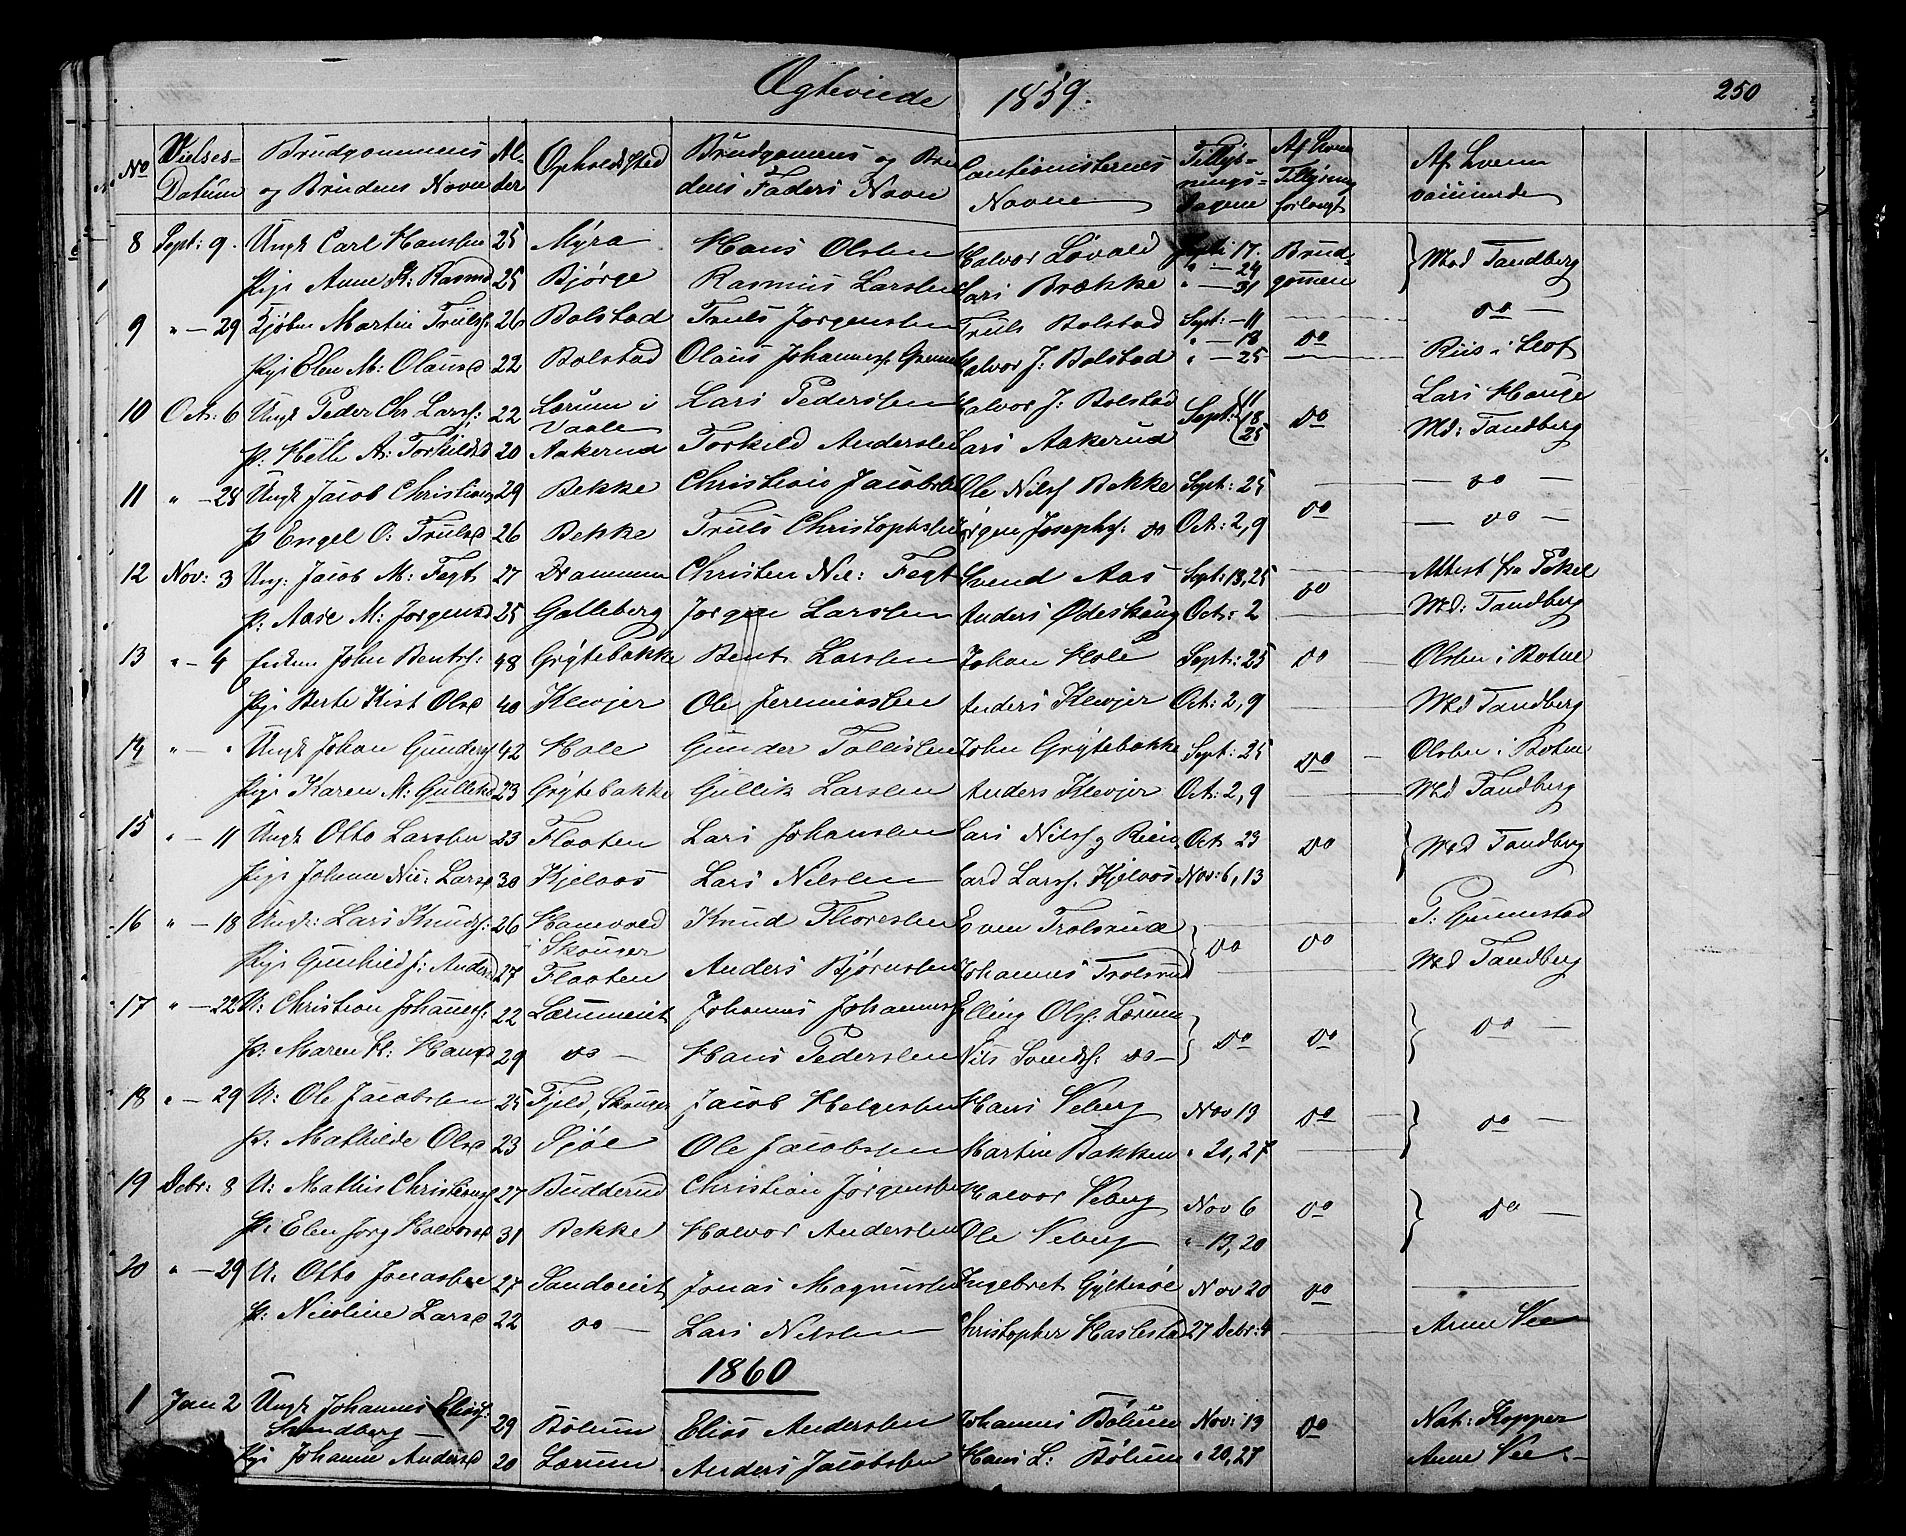 Ægteviede 1859. 250
No Vielses-Datum Brudgommens og Brudens Navn Al-der Opholdssted Brudgomens og Bru-dens Faders Navn Cautionisternes Navne Tillys-nings-Dagene Af hvem Tillysning forlangt Af hvem vaccinerede
8 Sept: 9. Ungk Carl Hanssen 25 Myra Hans Olsen Halvor Løvald Sept: 17. Brud- Med Tandberg
Pige Anne K: Rasmd 25 Bjørge Rasmus Larsen Lars Brække " — 24 " — 31 gomen
9 " — 29 Martin Trulss: 26 Bolstad Truls Jørgensen Truls Bolstad Sept: — 11 " — 18 do do —
Pige Elen M: Olausd 22 Bolstad Olaus Johanness: Halvor J: Bolstad " — 25 Riis i Hof
10 Oct: 6 Ungk Peder Chr Larss: 22 Lærum i Vaale Lars Pedersen Halvor J: Bolstad Sept: 11 18 25 do Lars Hauge
P: Helle A: Torkildsd 20 Aakerud Torkild Andersen Lars Aakerud Md: Tandberg
11 " — 28 Ungk Jacob Christians 29 Bekke Christens Jacobsen Ole Nilss Bekke Sept: 25 do — do —
P Engel O: Trulsd 26 Bekke Truls Christophsen Jørgen Josephs: do Oct: 2, 9 — do —
12 Nov: 3 Ung: Jacob M: Fegt 27 Drammen Christen Nic: Fegt Svend Aas Sept: 18, 25 do Attest fra
P: Aase M: Jørgensd 25 Galleberg Jørgen Larsen Anders Ødeskoug Oct: 2 Md: Tandberg
13 " — 4 Enkem John Bentss: 48 Grytebakke Bent Larsen Johan Hole Sept: 25 do Olsen i Botne
Pige Berte Kist Olsd 40 Klevjer Ole Jeremiassen Anders Klevjer Oct: 2, 9 Md Tandberg
14 " — " Ungk Johan Gunders 42 Hole Gunder Tollefsen John Grytebakke Sept: 25 do Olsen i Botne
Pige Karen M: Gulliksd 23 Grytebakke Gullik Larsen Anders Klevjer Oct: 2, 9 Md Tandberg
15 " — 11 Ungk Otto Larssen 23 Flaaten Lars Johansen Lars Nilss Oct 23 do Md Tandberg
Pige Johanne Nic: Larsd 30 Kjelaas Lars Nilsen Larss: Kjelaas Nov: 6, 13
16 " — 18 Ungk: Lars Knuds: 26 Hanevold i Skouger Knud Thoresen Even Trolsrud do do T: Gunnestad
Pige Gunhild J: Anders 27 Flaaten Anders Bjørnsen Johannes Trolsrud Md Tandberg
17 " — 22 U: Christian Johanness: 22 Lærumeiet Johannes Johanness Elling Ols: Lærum do do do —
P: Maren K: Hansd 29 do — Hans Pedersen Nils Svends: do —
18 " — 29 U: Ole Jacobsen 25 Fjeld, Skouger Jacob Helgesen Hans Veberg Nov 13 do do —
P: Mathilde Olsd 23 Sjøe Ole Jacobsen Martin Bakken " 20, 27
19 Debr: 8 U: Mathis Christians 27 Budderud Christian Jørgensen Halvor Veberg Nov 6 do do —
P: Elen Jørg Halvorsd 31 Bekke Halvor Andersen Ole Veberg " — 13, 20
20 " — 29 U. Otto Jonassen 27 Sandeeiet Jonas Magnussen Ingebret Gyltesøe Nov 20 do
P: Nicoline Larsd 22 do — Lars Nilsen Christopher Haslestad 27 Debr: 4 Arne Vee
1860
1 Jan 2 Ungk Johannes Elias: Strandberg — 29 Bølum Elias Andersen Johannes Bølum Nov: 13 do Nat: Kopper
Pige Johanne Andersd 20 Lærum Anders Jacobsen Hans L: Bølum " 20, 27 Arne Vee —